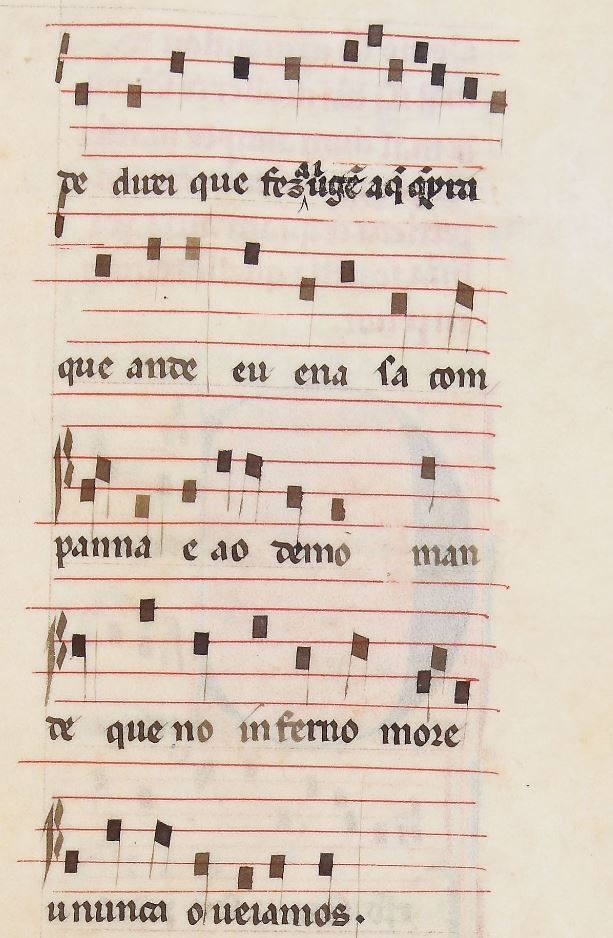 de direi que fez ai ugẽ aq̃ q̃ym
que ande eu ena sa com
panna e ao demo man
de que no inferno more
u nunca o ueiamos.